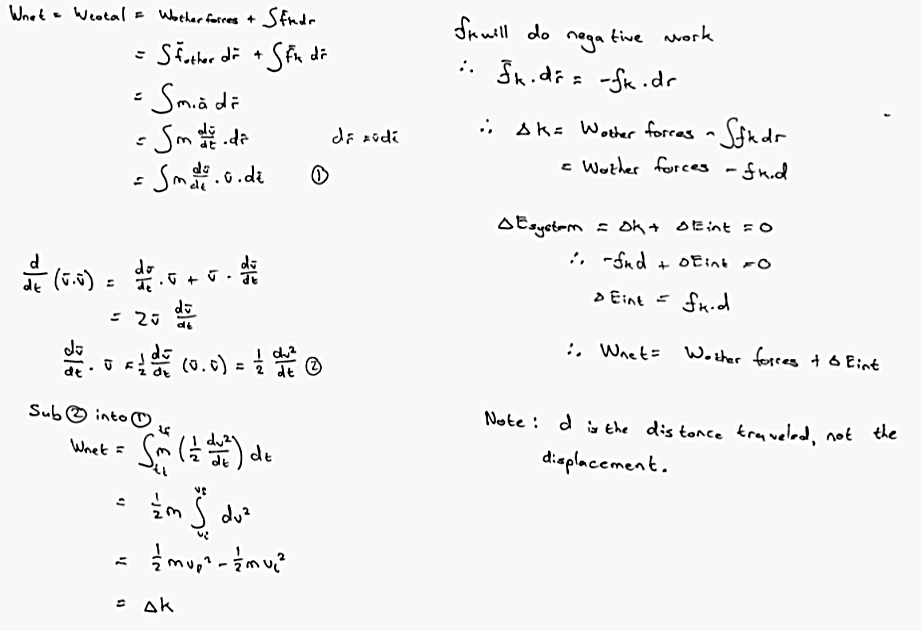 Wnet = Wtotal = Wother forces + ∫f̄kdr
= ∫f̄other dr̄ + ∫f̄k dr̄
= ∫m.ā dr̄
= ∫m dv̄/dt .dr̄    dr̄ = v̄dt
= ∫m dv̄/dt . v̄.dt    ①
d/dt (v̄.v̄) = dv̄/dt . v̄ + v̄ . dv̄/dt
= 2v̄ dv̄/dt
dv̄/dt . v̄ = 1/2 dv̄/dt (v̄.v̄) = 1/2 dv²/dt ②
Sub ② into ①
Wnet = ∫m (1/2 dv²/dt) dt
= 1/2 m ∫ dv²
= 1/2 mvf² - 1/2 mvi²
= Δk
fk will do negative work
∴ f̄k.dr̄ = -fk.dr
∴ Δk = Wother forces - ∫fkdr
= Wother forces - fk.d
ΔEsystem = Δk + ΔEint = 0
∴ -fkd + ΔEint = 0
ΔEint = fk.d
∴ Wnet = Wother forces + ΔEint
Note: d is the distance traveled, not the
displacement.